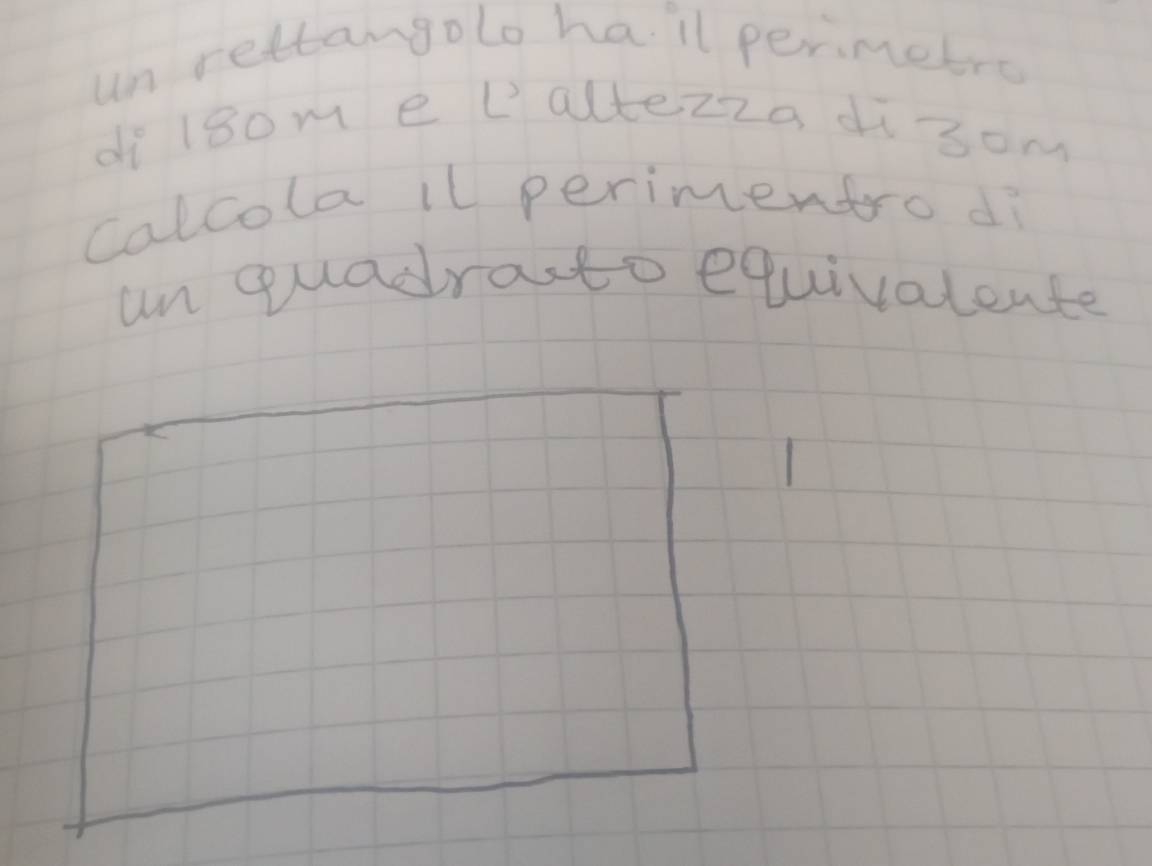 un rettangolo ha il perimetro
di 180m e l'altezza di 30m
calcola il perimentro di
un quadrato equivalente